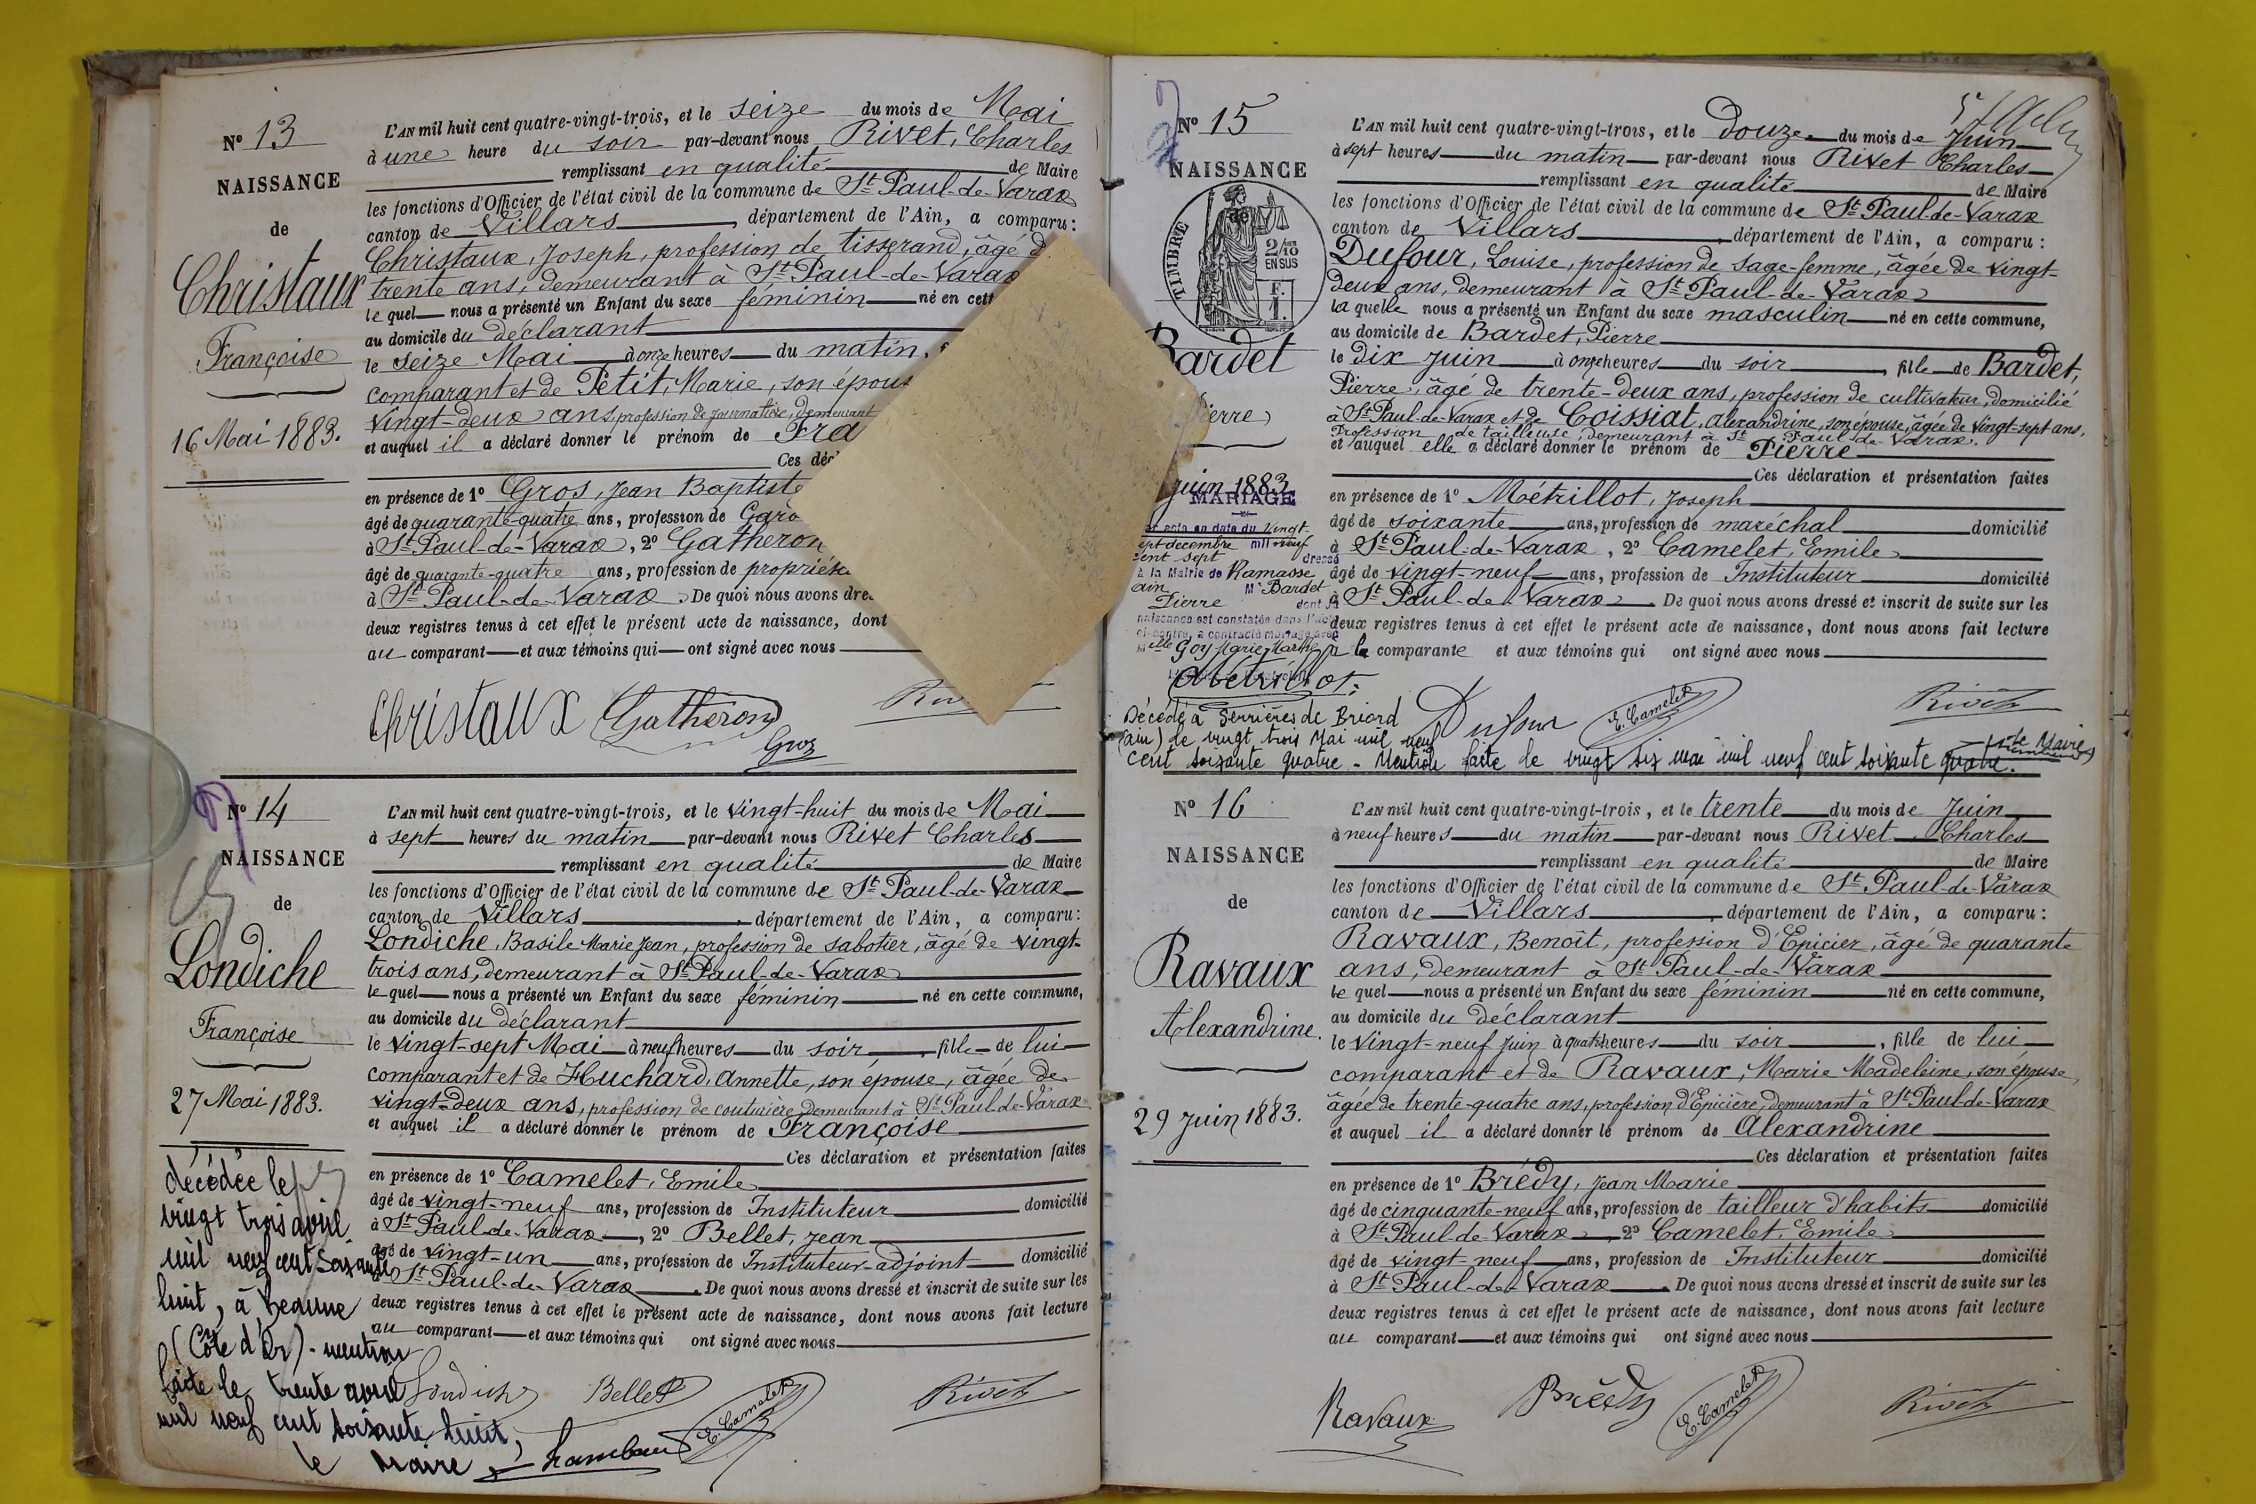 N° 13
NAISSANCE
de
Christaux
Françoise
16 Mai 1883.
L'AN mil huit cent quatre-vingt-trois, et le seize du mois de Mai
à une heure du soir par-devant nous Rivet, Charles
remplissant en qualité de Maire
les fonctions d'Officier de l'état civil de la commune de St Paul-de-Varax
canton de Villars, département de l'Ain, a comparu :
Christaux, Joseph, profession de tisserand, âgé d
trente ans, demeurant à St Paul-de-Varax
le quel nous a présenté un Enfant du sexe féminin né en cett
au domicile du déclarant
le seize Mai à onze heures du matin,
comparant et de Petit, Marie, son épous
vingt-deux ans, profession de journalière, demeurant
et auquel il a déclaré donner le prénom de Fra
Ces décl
en présence de 1° Gros, Jean Baptiste
âgé de quarante-quatre ans, profession de Gard
à St Paul-de-Varax, 2° Gatheron
âgé de quarante-quatre ans, profession de propriéta
à St Paul-de-Varax. De quoi nous avons dres
deux registres tenus à cet effet le présent acte de naissance, dont
au comparant et aux témoins qui ont signé avec nous
Christaux Gatheron
Gros
N° 14
NAISSANCE
de
Londiche
Françoise
27 Mai 1883.
L'AN mil huit cent quatre-vingt-trois, et le vingt-huit du mois de Mai
à sept heures du matin par-devant nous Rivet Charles
remplissant en qualité de Maire
les fonctions d'Officier de l'état civil de la commune de St Paul-de-Varax
canton de Villars, département de l'Ain, a comparu :
Londiche, Basile Marie Jean, profession de sabotier, âgé de vingt-
trois ans, demeurant à St Paul-de-Varax
le quel nous a présenté un Enfant du sexe féminin né en cette commune,
au domicile du déclarant
le vingt-sept Mai à neuf heures du soir, fille de lui
comparant et de Huchard, Annette, son épouse, âgée de
vingt-deux ans, profession de couturière, demeurant à St Paul-de-Varax
et auquel il a déclaré donner le prénom de Françoise
Ces déclaration et présentation faites
en présence de 1° Camelet, Emile
âgé de vingt-neuf ans, profession de Instituteur domicilié
à St Paul-de-Varax, 2° Bellet, Jean
âgé de vingt-un ans, profession de Instituteur-adjoint domicilié
à St Paul-de-Varax. De quoi nous avons dressé et inscrit de suite sur les
deux registres tenus à cet effet le présent acte de naissance, dont nous avons fait lecture
au comparant et aux témoins qui ont signé avec nous
décédée le
vingt trois avril
mil neuf cent soixante
huit, à Beaune
(Côte d'Or) - mention
faite le trente avril
mil neuf cent soixante huit,
le Maire
Londiche Bellet E. Camelet Rivet
N° 15
NAISSANCE
de
TIMBRE
2/10
EN SUS
F.
1.
Bardet
Pierre
juin 1883
MARIAGE
par acte en date du Vingt
sept décembre mil neuf
cent sept dressé
à la Mairie de Ramasse
ain Mr Bardet
Pierre dont la
naissance est constatée dans l'acte
ci-contre, a contracté mariage avec
Melle Goy Marie Marthe
L'AN mil huit cent quatre-vingt-trois, et le Douze du mois de Juin
à sept heures du matin par-devant nous Rivet Charles
remplissant en qualité de Maire
les fonctions d'Officier de l'état civil de la commune de St Paul-de-Varax
canton de Villars, département de l'Ain, a comparu :
Dufour, Louise, profession de sage-femme, âgée de vingt-
deux ans, demeurant à St Paul-de-Varax
la quelle nous a présenté un Enfant du sexe masculin né en cette commune,
au domicile de Bardet, Pierre
le dix juin à onze heures du soir, fille de Bardet,
Pierre, âgé de trente-deux ans, profession de cultivateur, domicilié
à St Paul-de-Varax et de Coissiat, Alexandrine, son épouse, âgée de vingt-sept ans,
Profession de tailleuse, demeurant à St Paul-de-Varax.
et auquel elle a déclaré donner le prénom de Pierre
Ces déclaration et présentation faites
en présence de 1° Métrillot, Joseph
âgé de soixante ans, profession de maréchal domicilié
à St Paul-de-Varax, 2° Camelet, Emile
âgé de vingt-neuf ans, profession de Instituteur domicilié
à St Paul-de-Varax. De quoi nous avons dressé et inscrit de suite sur les
deux registres tenus à cet effet le présent acte de naissance, dont nous avons fait lecture
à la comparante et aux témoins qui ont signé avec nous
Métrillot Dufour E. Camelet Rivet
Décédé à Serrières de Briord
(ain) le vingt trois Mai mil neuf
cent soixante quatre - Mention faite le vingt six mai mil neuf cent soixante quatre. le Maire
N° 16
NAISSANCE
de
Ravaux
Alexandrine.
29 Juin 1883.
L'AN mil huit cent quatre-vingt-trois, et le trente du mois de Juin
à neuf heures du matin par-devant nous Rivet Charles
remplissant en qualité de Maire
les fonctions d'Officier de l'état civil de la commune de St Paul-de-Varax
canton de Villars, département de l'Ain, a comparu :
Ravaux, Benoît, profession d'Epicier, âgé de quarante
ans, demeurant à St Paul-de-Varax
le quel nous a présenté un Enfant du sexe féminin né en cette commune,
au domicile du déclarant
le vingt-neuf juin à quatre heures du soir, fille de lui
comparant et de Ravaux, Marie Madeleine, son épouse,
âgée de trente-quatre ans, profession d'Epicière, demeurant à St Paul-de-Varax
et auquel il a déclaré donner le prénom de Alexandrine
Ces déclaration et présentation faites
en présence de 1° Brédy, Jean Marie
âgé de cinquante-neuf ans, profession de tailleur d'habits domicilié
à St Paul-de-Varax, 2° Camelet, Emile
âgé de vingt-neuf ans, profession de Instituteur domicilié
à St Paul-de-Varax. De quoi nous avons dressé et inscrit de suite sur les
deux registres tenus à cet effet le présent acte de naissance, dont nous avons fait lecture
au comparant et aux témoins qui ont signé avec nous
Ravaux Brédy E. Camelet Rivet